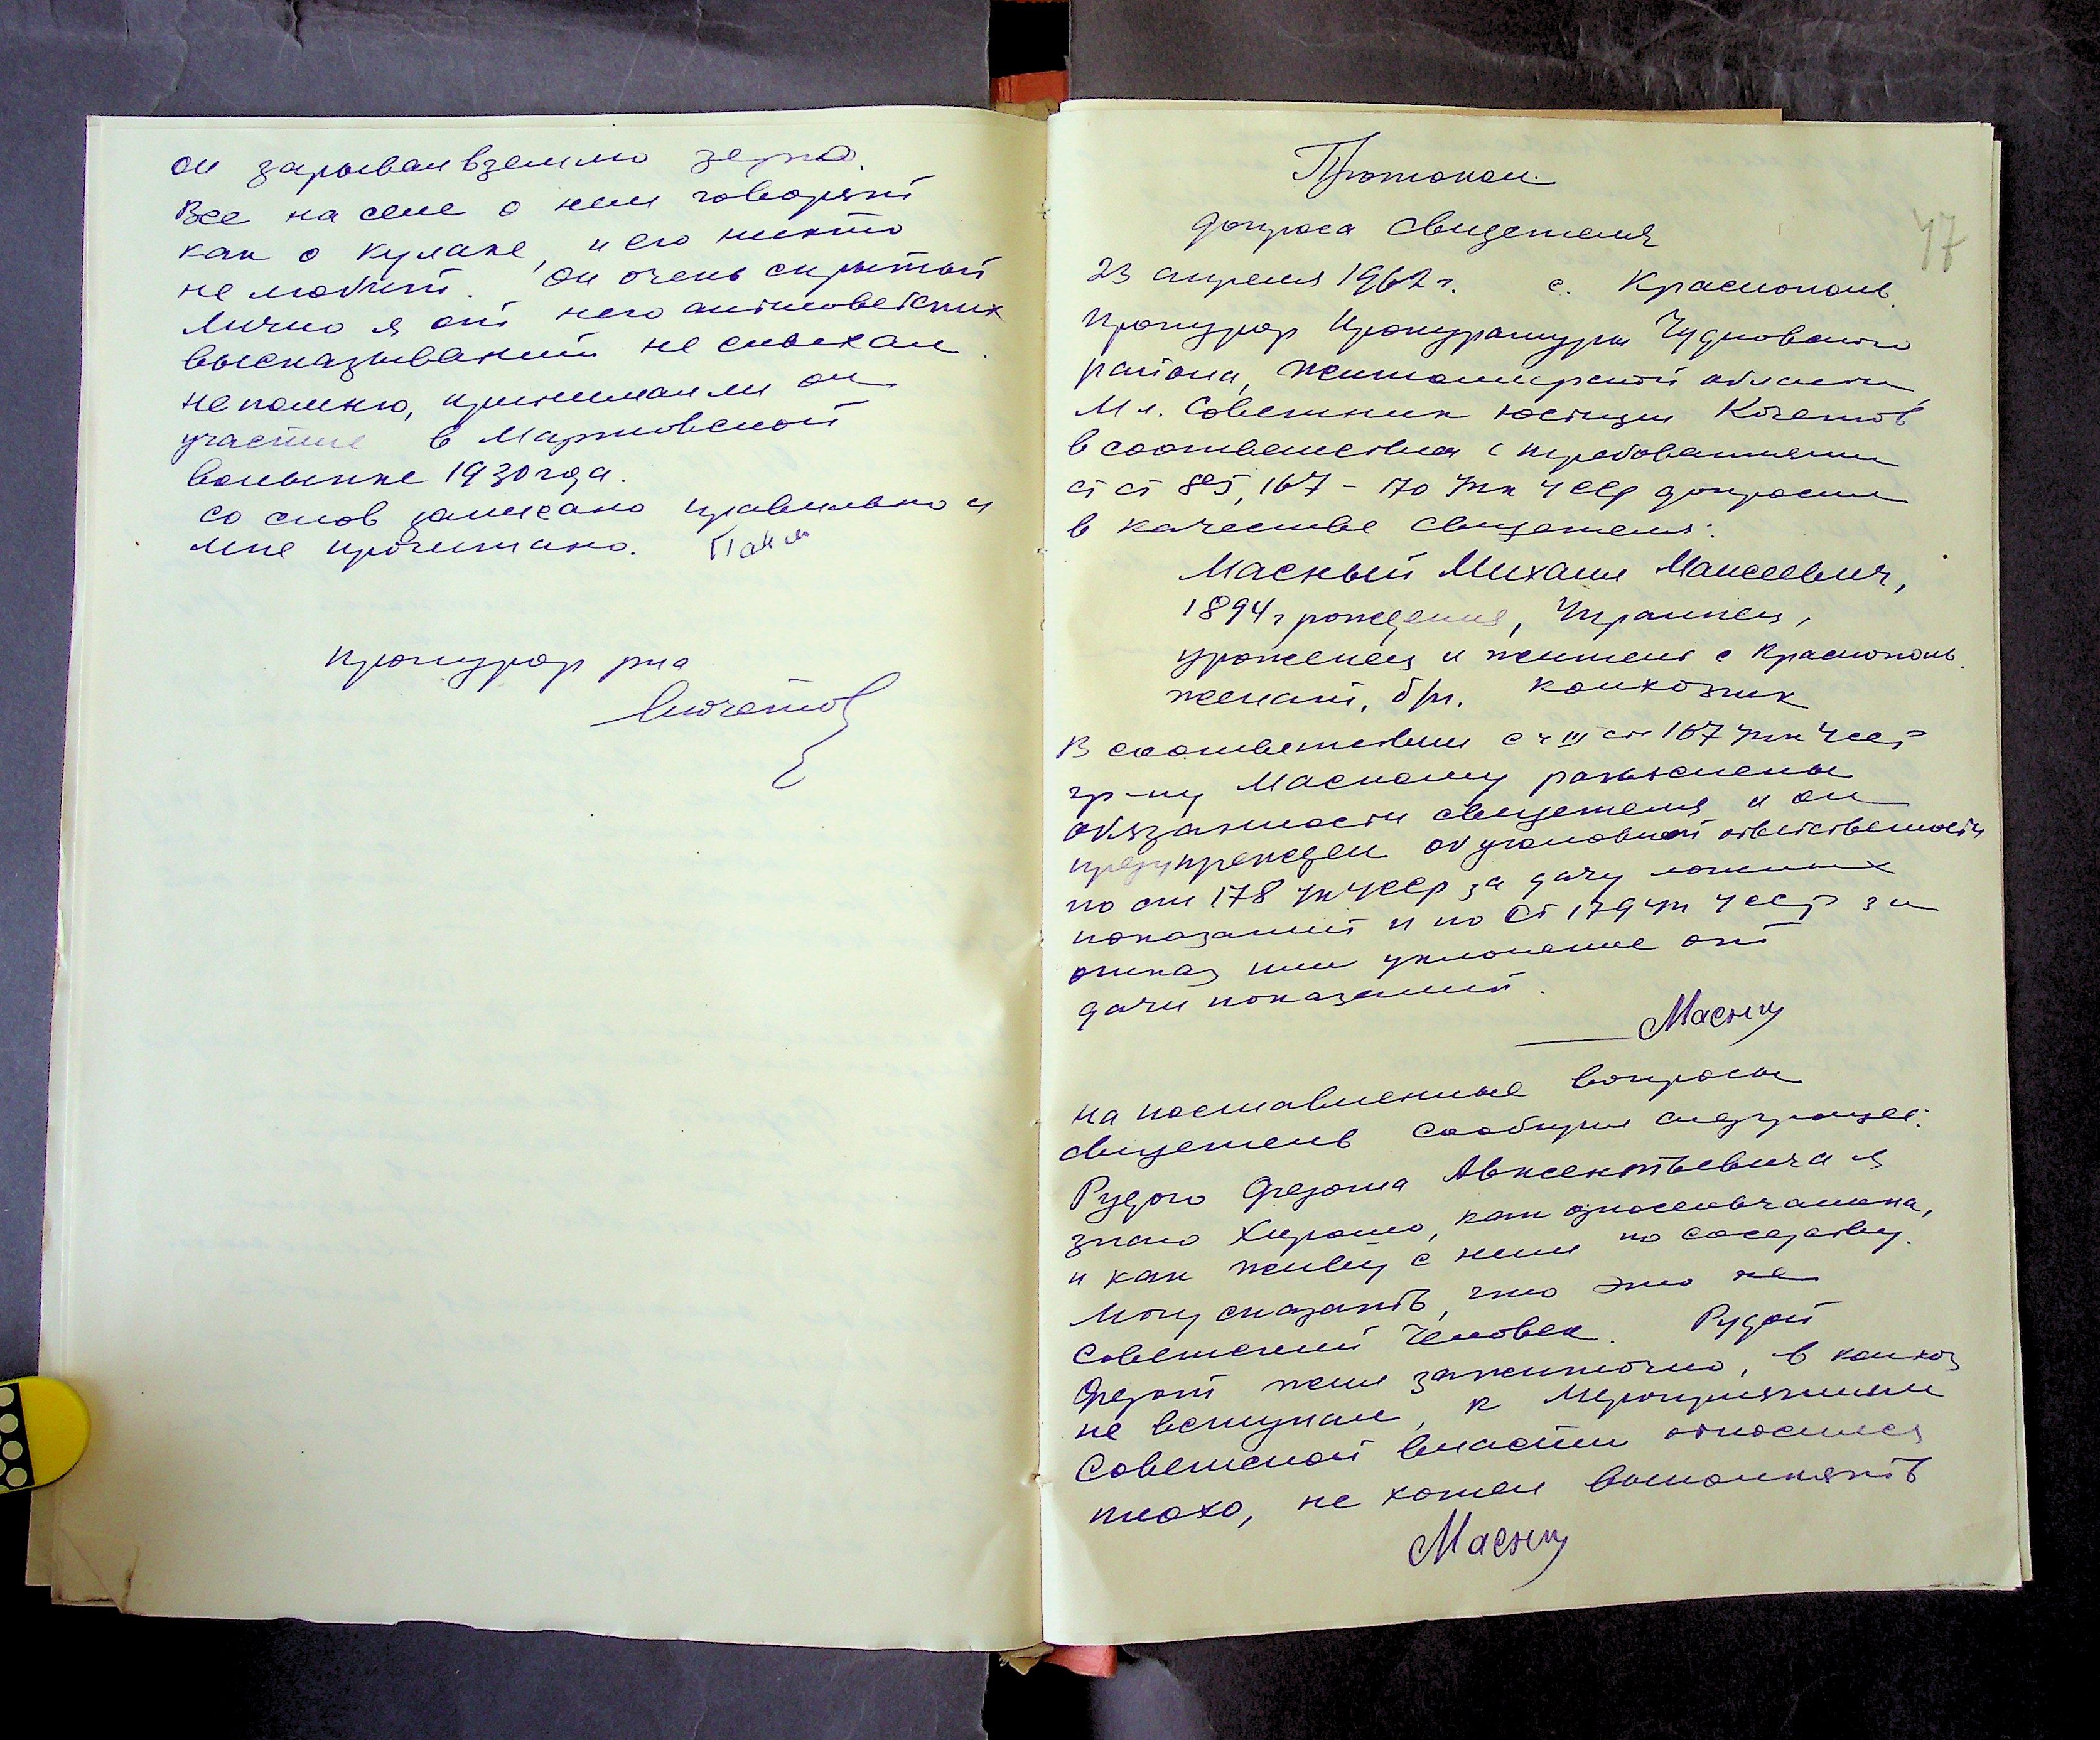 он зарывал в землю зерно.
Все на селе о нем говорят
как о кулаке, и его никто
не любит. Он очень скрытый
Лично я от него антисоветских
высказываний не слыхал.
Не помню, принимал ли он
участие в Мартковской
волынке 1930 года.
Со слов записано правильно и
мне прочитано.
Прокурор р-на
47
Протокол
допроса свидетеля
23 апреля 1962 г. с. Краснополь.
Прокурор Прокуратуры Чудновского
района, Житомирской области
Мл. Советник юстиции Кочетов
в соответствии с требованиями
ст ст 85, 167 – 170 УПК УССР допросил
в качестве свидетеля:
Масный Михаил Моисеевич,
1894 г рождения, Украинец,
уроженец и житель с Краснополь.
женат, б/п. колхозник
В соответствии с ч III ст 167 УПК УССР
гр-ну Масному разъяснены
обязанности свидетеля и он
предупрежден об уголовной ответственности
по ст 178 УК УССР за дачу ложных
показаний и по ст 179 УК УССР за
отказ или уклонение от
дачи показаний.
Масны
На поставленные вопросы
свидетель сообщил следующее:
Рудого Федота Авксентьевича я
знаю хорошо, как односельчанина,
и как живу с ним по соседству.
Могу сказать, что это не
советский человек. Рудой
Федот жил зажиточно, в колхоз
не вступал, к мероприятиям
Советской власти относился
плохо, не хотел выполнять
Масны